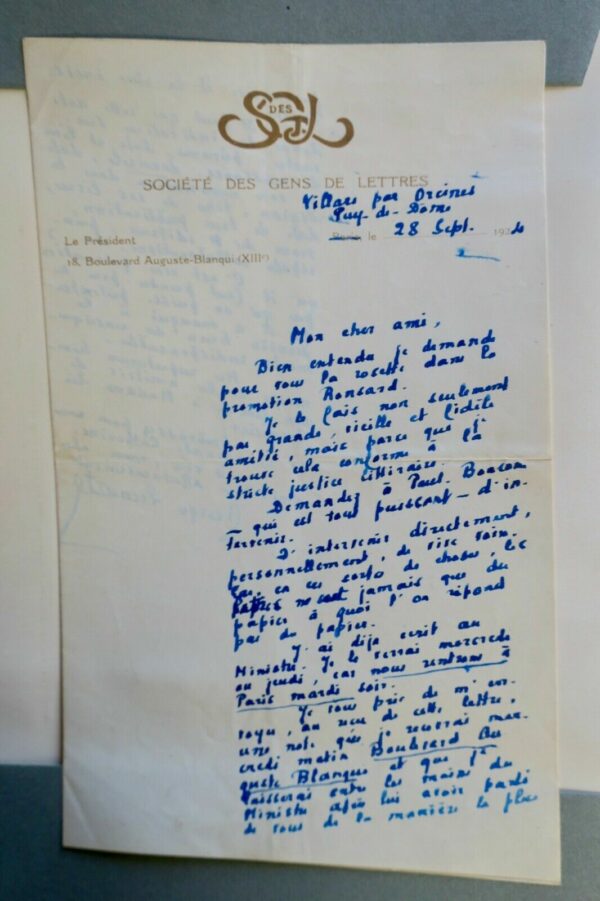 S DES G. L
SOCIÉTÉ DES GENS DE LETTRES
Villars par Orcines
Puy-de-Dôme
Le Président
Paris, le 28 Sept. 1924
18, Boulevard Auguste-Blanqui (XIIIe)
Mon cher ami,
Bien entendu je demande
pour vous la rosette dans la
promotion Ronsard.
Je le fais non seulement
par grande, vieille et fidèle
amitié, mais parce que je
trouve cela conforme à la
stricte justice littéraire.
Demandez à Paul-Boncour
— qui est tout puissant — d'in-
tervenir.
D'intervenir directement,
personnellement, de vive voix.
Car, en ces sortes de choses, les
lettres ne sont jamais que du
papier à quoi l'on répond
par du papier.
J'ai déjà écrit au
Ministre. Je le verrai mercredi
ou jeudi, car nous rentrons à
Paris mardi soir.
Je vous prie de m'en-
voyer, au reçu de cette lettre,
une note que je recevrai mer-
credi matin Boulevard Au-
guste Blanqui et que je
laisserai entre les mains du
Ministre après lui avoir parlé
de vous de la manière la plus